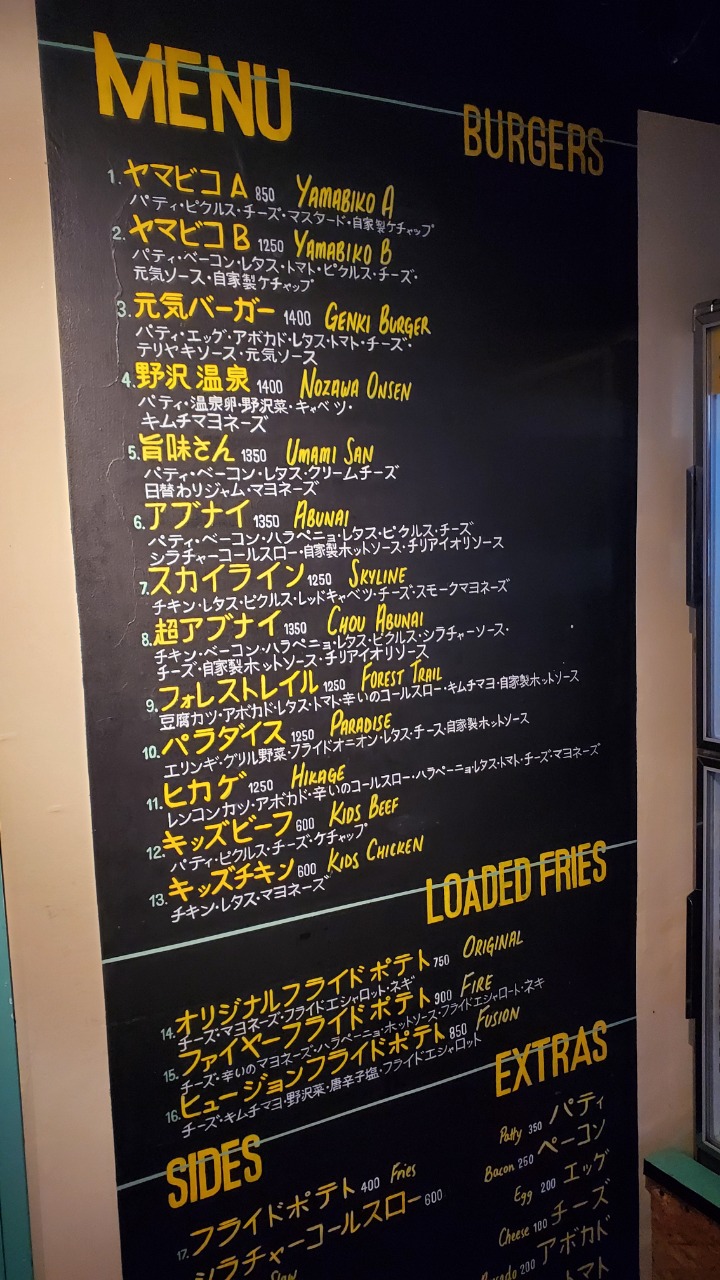 MENU
BURGERS
1. ヤマビコ A 850 YAMABIKO A
パティ・ピクルス・チーズ・マスタード・自家製ケチャップ
2. ヤマビコ B 1250 YAMABIKO B
パティ・ベーコン・レタス・トマト・ピクルス・チーズ・
元気ソース・自家製ケチャップ
3. 元気バーガー 1400 GENKI BURGER
パティ・エッグ・アボカド・レタス・トマト・チーズ・
テリヤキソース・元気ソース
4. 野沢温泉 1400 NOZAWA ONSEN
パティ・温泉卵・野沢菜・キャベツ・
キムチマヨネーズ
5. 旨味さん 1350 UMAMI SAN
パティ・ベーコン・レタス・クリームチーズ
日替わりジャム・マヨネーズ
6. アブナイ 1350 ABUNAI
パティ・ベーコン・ハラペニョ・レタス・ピクルス・チーズ
シラチャーコールスロー・自家製ホットソース・チリアイオリソース
7. スカイライン 1250 SKYLINE
チキン・レタス・ピクルス・レッドキャベツ・チーズ・スモークマヨネーズ
8. 超アブナイ 1350 CHOU ABUNAI
チキン・ベーコン・ハラペニョ・レタス・ピクルス・シラチャーソース・
チーズ・自家製ホットソース・チリアイオリソース
9. フォレストレイル 1250 FOREST TRAIL
豆腐カツ・アボカド・レタス・トマト・辛いのコールスロー・キムチマヨ・自家製ホットソース
10. パラダイス 1250 PARADISE
エリンギ・グリル野菜・フライドオニオン・レタス・チーズ・自家製ホットソース
11. ヒカゲ 1250 HIKAGE
レンコンカツ・アボカド・辛いのコールスロー・ハラペーニョ・レタス・トマト・チーズ・マヨネーズ
12. キッズビーフ 600 KIDS BEEF
パティ・ピクルス・チーズ・ケチャップ
13. キッズチキン 600 KIDS CHICKEN
チキン・レタス・マヨネーズ
LOADED FRIES
14. オリジナルフライドポテト 750 ORIGINAL
チーズ・マヨネーズ・フライドエシャロット・ネギ
15. ファイヤーフライドポテト 900 FIRE
チーズ・辛いのマヨネーズ・ハラペーニョ・ホットソース・フライドエシャロート・ネキ
16. ヒュージョンフライドポテト 850 FUSION
チーズ・キムチマヨ・野沢菜・唐辛子塩・フライドエシャロット
EXTRAS
Patty 350 パティ
Bacon 250 ベーコン
Egg 200 エッグ
Cheese 100 チーズ
200 アボカド
トマト
SIDES
17. フライドポテト 400 Fries
シラチャーコールスロー 600
Slaw